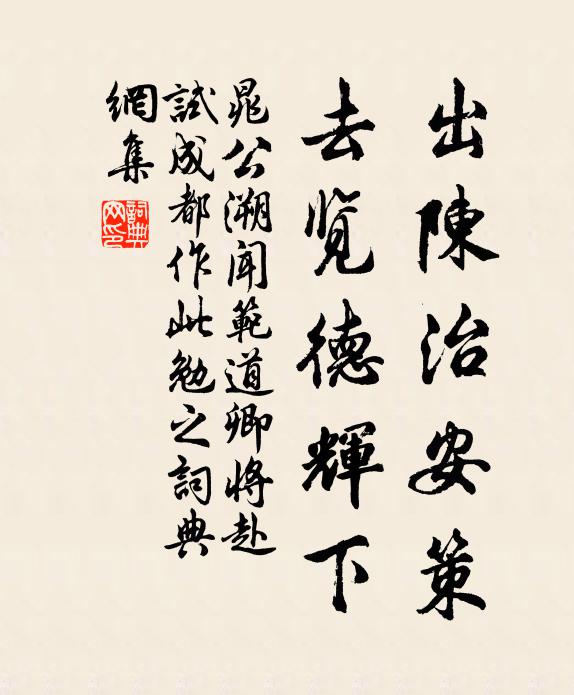 出陳治安策
去览德輝下
晁公溯闻範道卿将赴
試成都作此勉之詞典
網集
詞典
网印